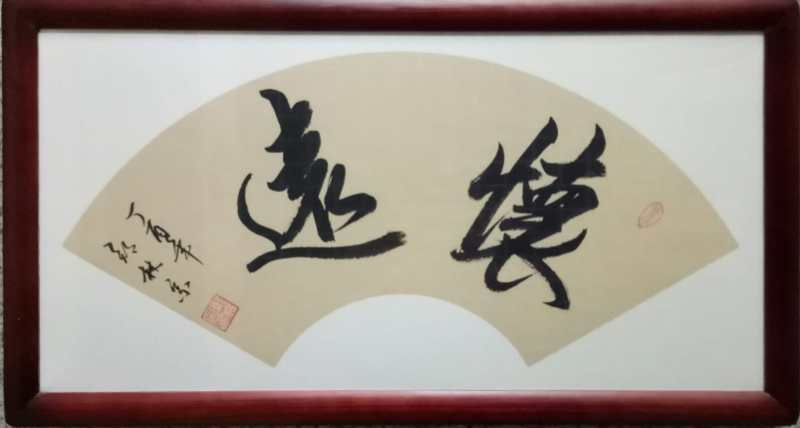 懷遠
丁酉年